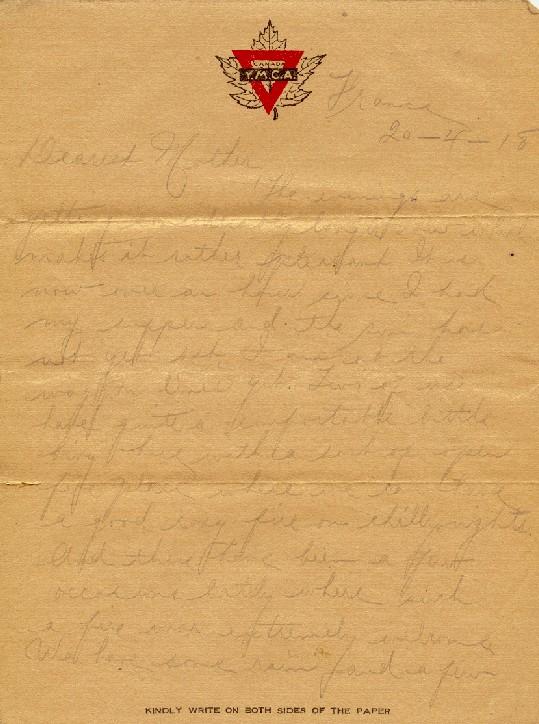 CANADA
Y.M.C.A.
France
20-4-18
Dearest Mother
The evenings are
getting quite long now which
makes it rather pleasant. It is
now over an hour since I had
my supper and the sun has
not yet set. I am at the
wagon lines yet. Two of us
have quite a comfortable little
bivy here with a sort of open
fire place where we can have
a good cosy fire on chilly nights.
And there have been a few
occasions lately where such
a fire was extremely welcome
We have some rain and a few
KINDLY WRITE ON BOTH SIDES OF THE PAPER